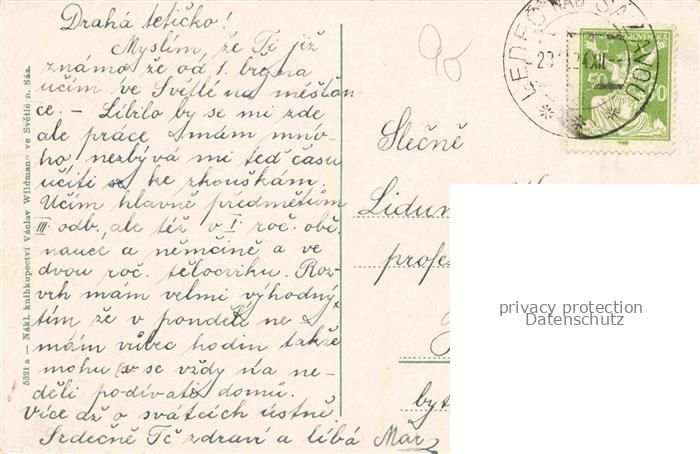 Drahá tetičko!
Myslím, že Ti již
známo že od 1. března
učím ve Světlé na měšťan-
ce. – Líbilo by se mi zde
ale práce mám mno-
ho nezbývá mi teď času
učiti se ke zkouškám.
Učím hlavně předmětům
III. odb., ale též v I. roč. obč.
nauce a němčině a ve
dvou roč. tělocviku. Roz-
vrh mám velmi výhodný
tím že v pondělí ne-
mám vůbec hodin takže
mohu se vždy na ne-
děli podívati domů.
Více až o svátcích ústně.
Srdečně Tě zdraví a líbá Mař
5321 a — Nákl. knihkupectví Václav Wildman ve Světlé n. Sáz.
90
LEDEČ NAD SÁZAVOU
SLOVENSKÁ
50
Slečně
profes
byt
privacy protection
Datenschutz